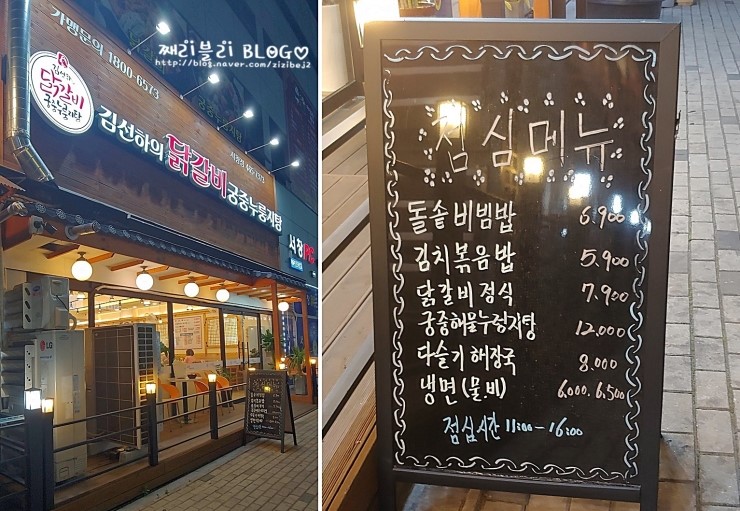 째리블리 BLOG♡
http://blog.naver.com/zizibej2
가맹문의 1800-6573
김선하의
닭갈비
궁중누룽지탕
김선하의 닭갈비 궁중누룽지탕
서창
LG
점심메뉴
돌솥비빔밥 6.900
김치볶음밥 5.900
닭갈비정식 7.900
궁중해물누룽지탕 12,000
다슬기해장국 8.000
냉면(물.비) 6,000. 6,500
점심시간 11:00 - 16:00